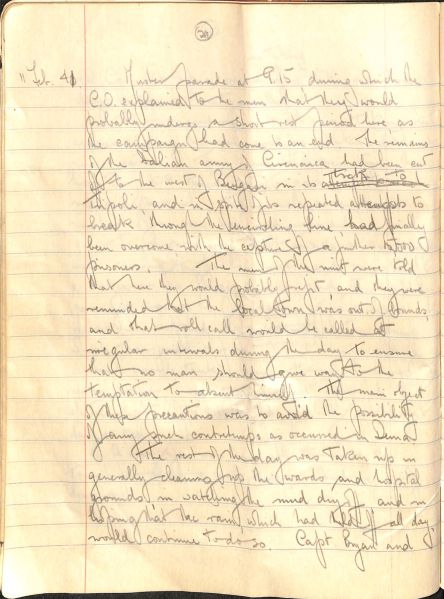 11 Feb. 41 Muster parade at 9.15 during which the
C.O. explained to the men that they would
probably undergo a short rest period here as
the campaign had come to an end. The remains
of the Italian army in Cirenaica had been cut
off to the west of Bengasi in its
Tripoli and in spite of its repeated attempts to
break through the encircling line had finally
been overcome with the capture of a further
prisoners. The men of the unit were told
that here they would probably rest and they were
reminded that the local town was out of bounds
and that roll call would be called at
irregular intervals during the day to ensure
that no man should give way to the
temptation to absent himself. The main object
of these precautions was to avoid the possibility
of any such contretemps as occurred in Derna.
The rest of the day was taken up in
generally cleaning up the wards and hospital
grounds in watching the mud dry off and in
hoping that the rain, which had held off all day
would continue to do so. Capt and